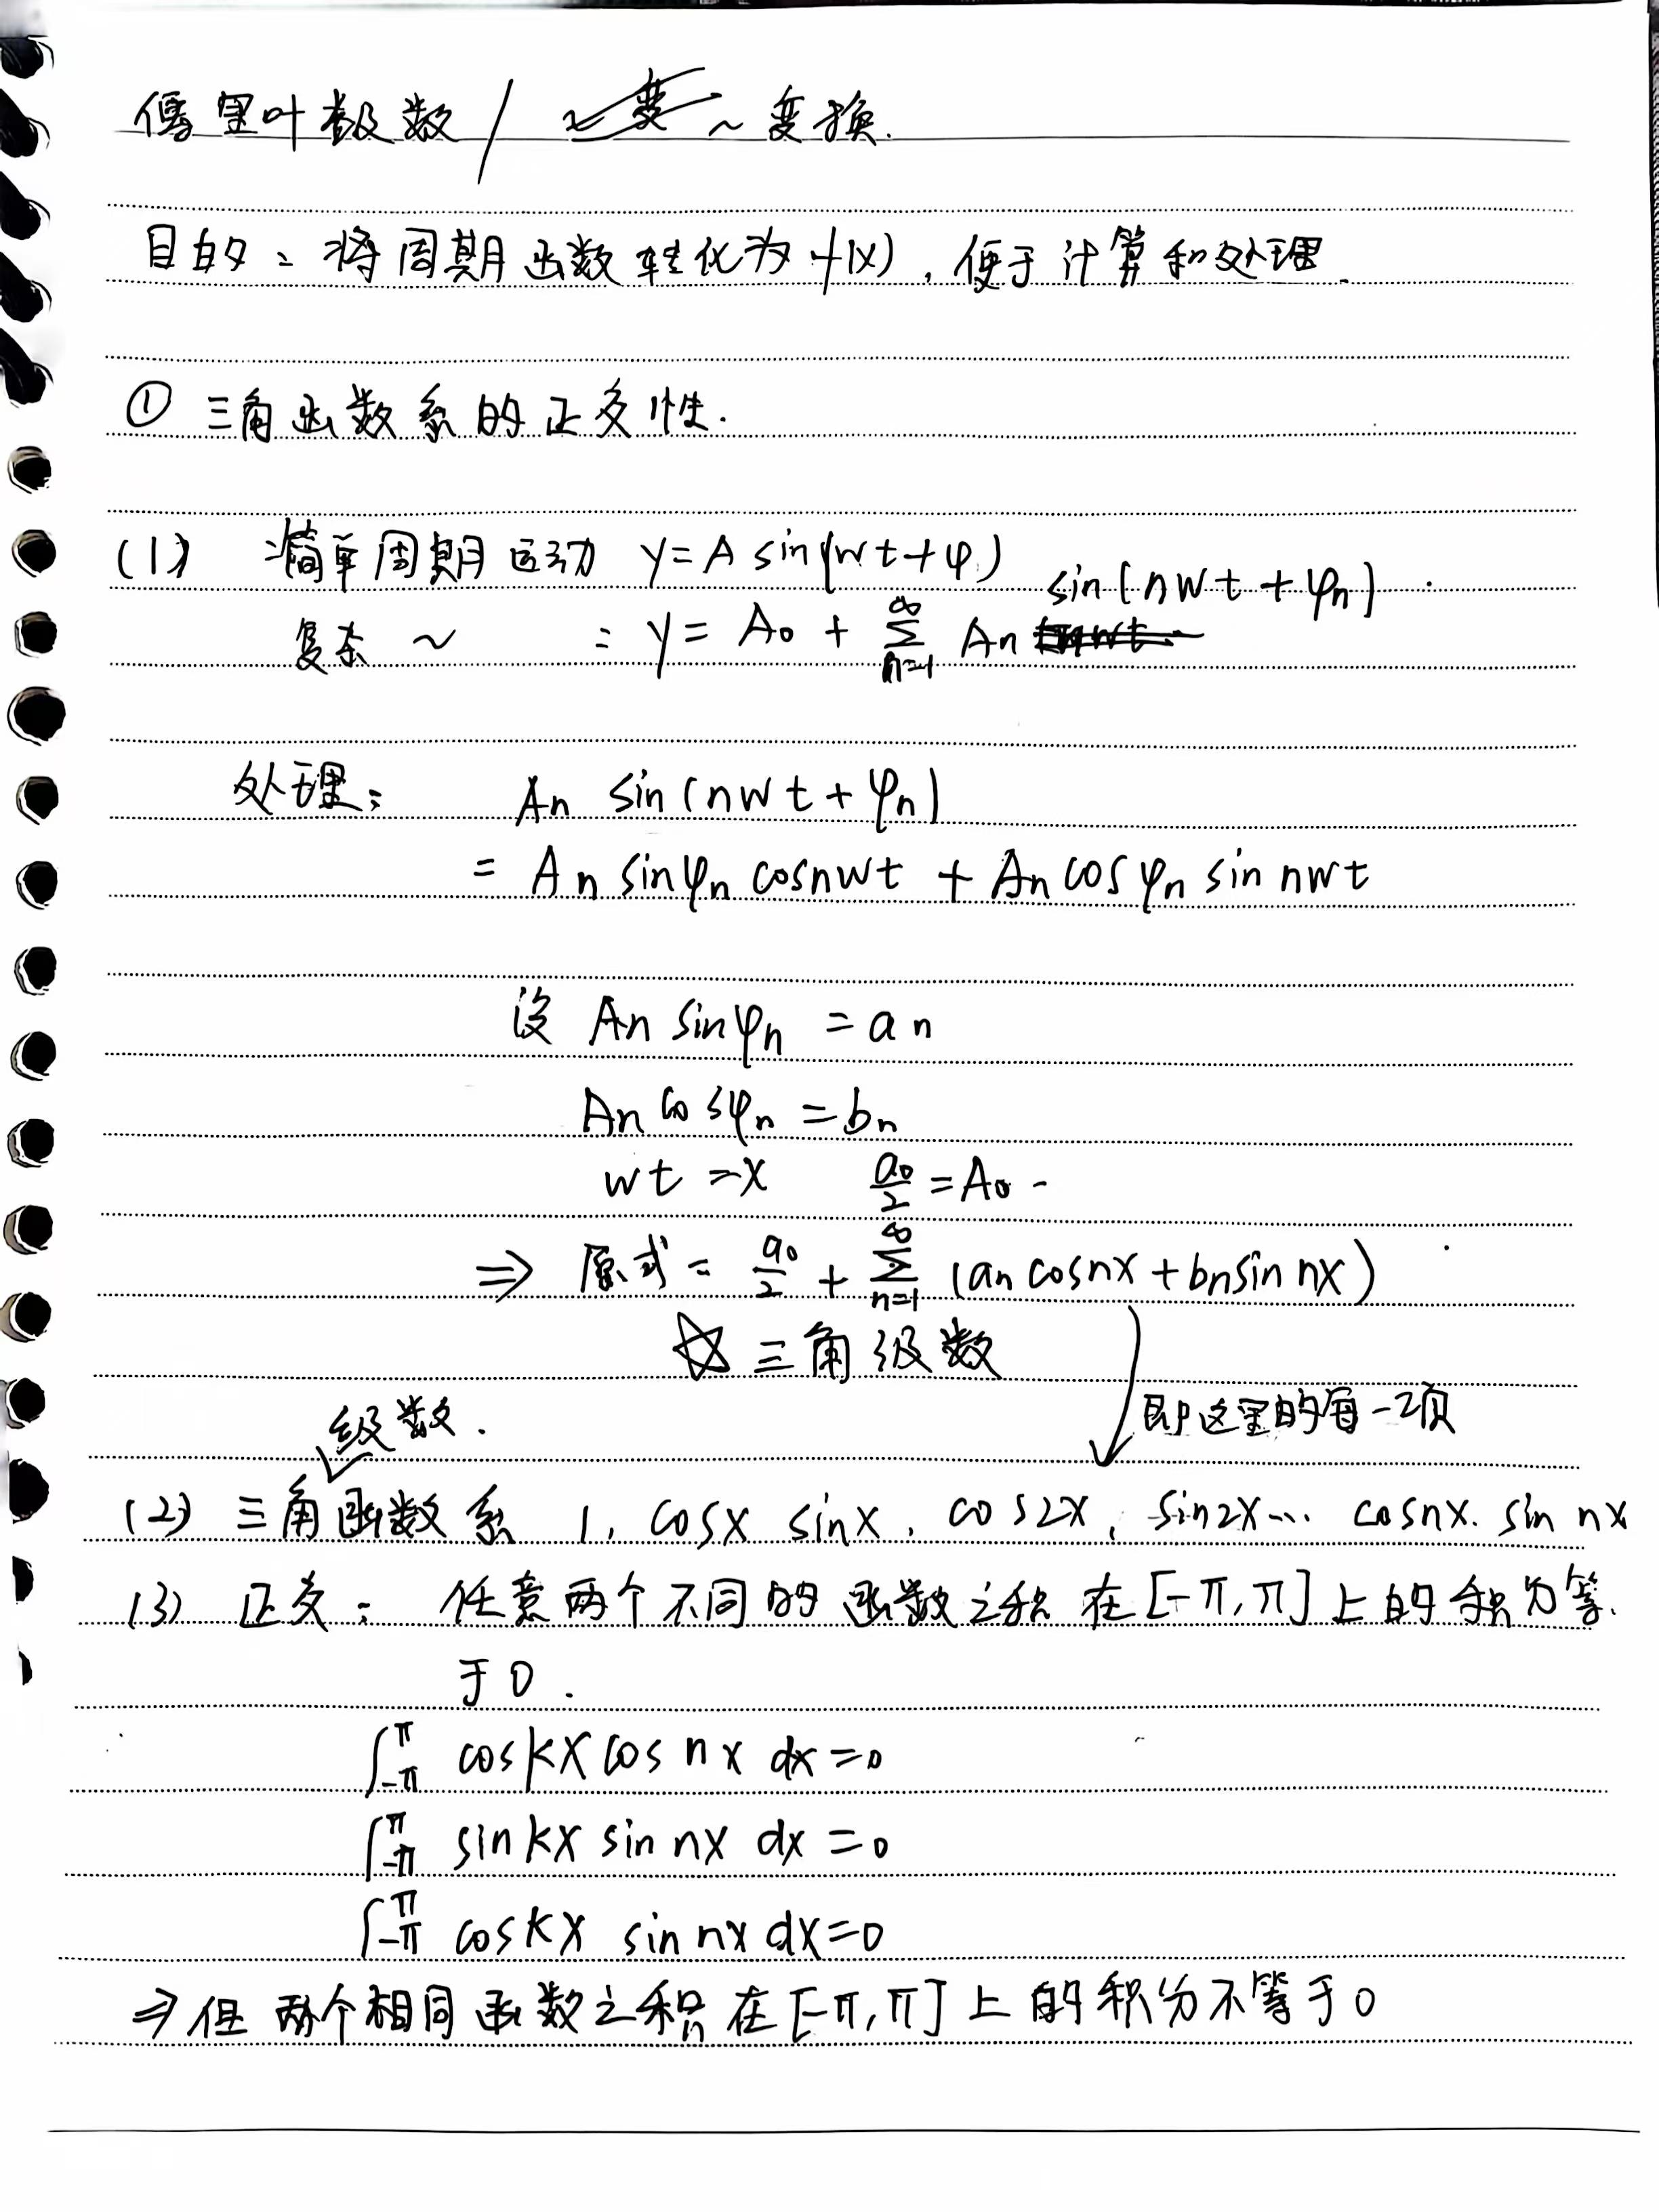 傅里叶级数 / ~变换.
目的: 将周期函数转化为 f(x), 便于计算和处理.
① 三角函数系的正交性.
(1) 简单周期运动 y=A sin(wt+φ)
复杂 ~ : y= A₀ + ∑_{n=1}^{∞} An sin(nwt+φn)
处理: An sin(nwt+φn)
= An sinφn cosnwt + An cosφn sin nwt
设 An sinφn = an
An cosφn = bn
wt =x a₀/2 = A₀
⇒ 原式 = a₀/2 + ∑_{n=1}^{∞} (an cosnx + bn sin nx)
☆ 三角级数
级数. 即这里的每一项
(2) 三角函数系 1, cosx sinx, cos2x, sin2x... cosnx. sin nx
(3) 正交: 任意两个不同的函数之积在[-π,π]上的积分等
于0.
∫_{-π}^{π} coskx cos nx dx=0
∫_{-π}^{π} sinkx sin nx dx=0
∫_{-π}^{π} coskx sin nx dx=0
⇒但两个相同函数之积在[-π,π]上的积分不等于0